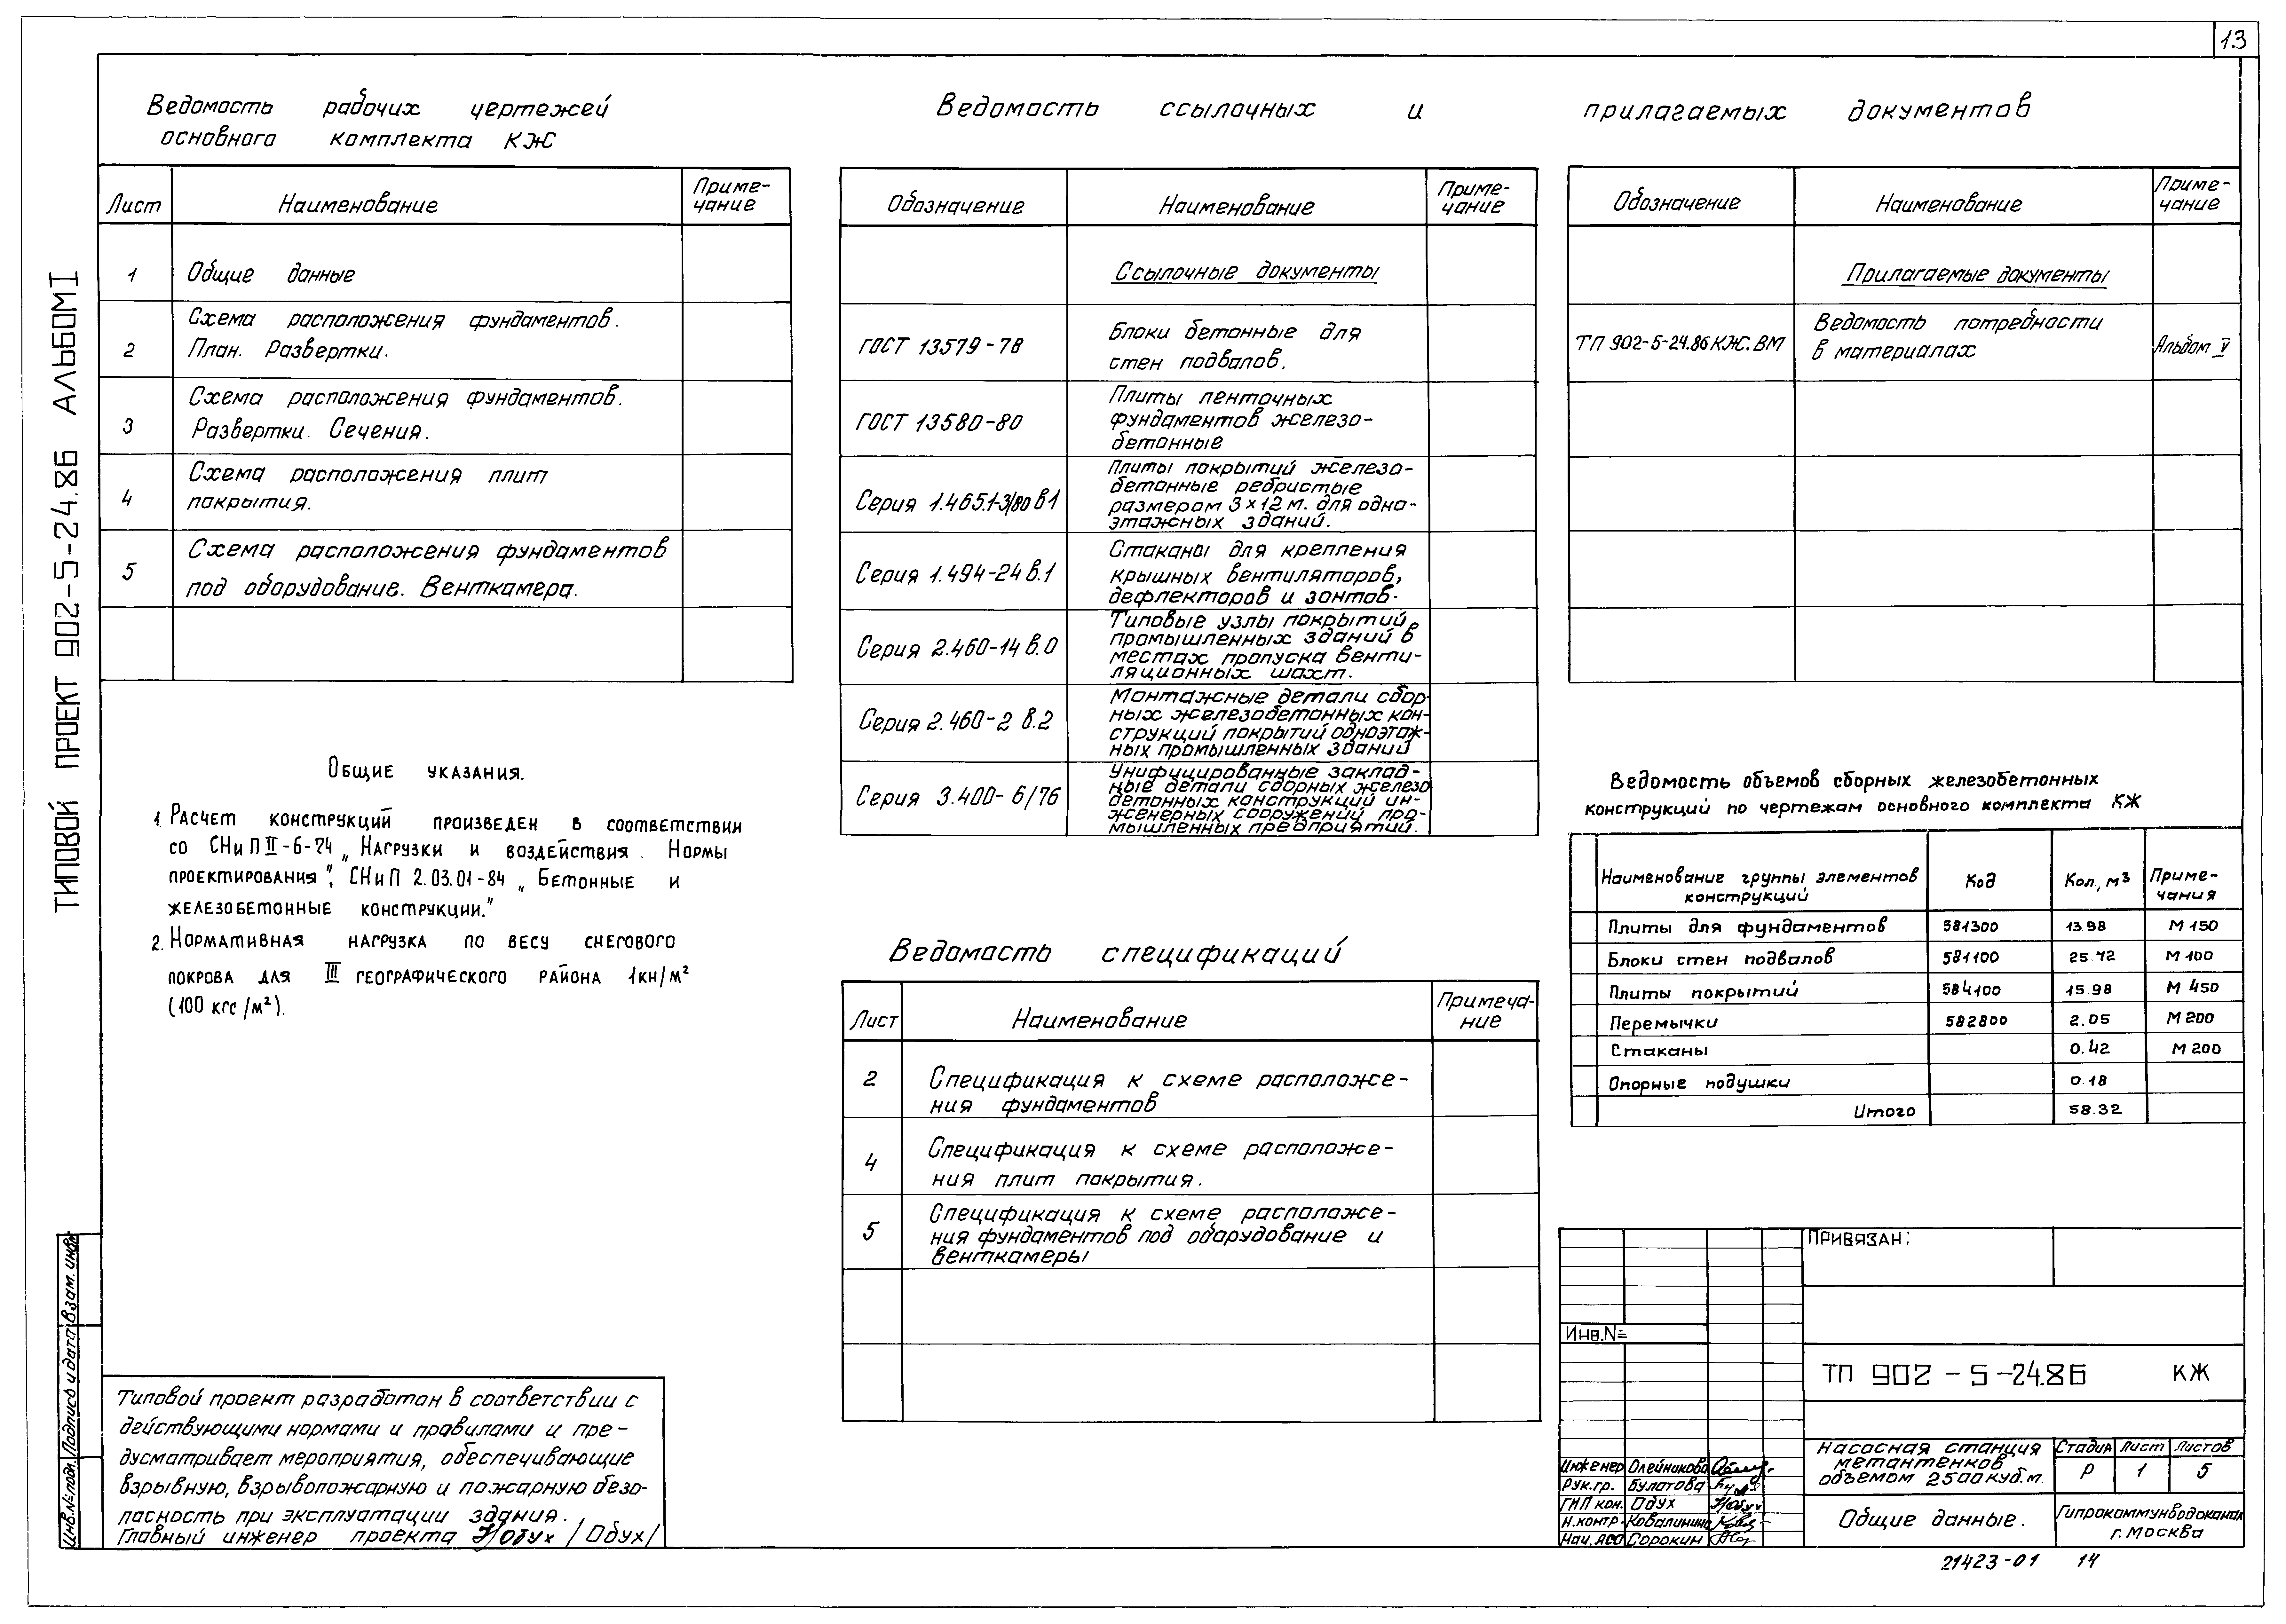 13
ТИПОВОЙ ПРОЕКТ 902-5-24.86 АЛЬБОМ I
Ведомость рабочих чертежей
основного комплекта КЖ
Лист
Наименование
Приме-
чание
1
Общие данные
2
Схема расположения фундаментов.
План. Развертки.
3
Схема расположения фундаментов.
Развертки. Сечения.
4
Схема расположения плит
покрытия.
5
Схема расположения фундаментов
под оборудование. Венткамера.
Ведомость ссылочных и прилагаемых документов
Обозначение
Наименование
Приме-
чание
Ссылочные документы
ГОСТ 13579-78
Блоки бетонные для
стен подвалов.
ГОСТ 13580-80
Плиты ленточных
фундаментов железо-
бетонные
Серия 1.465.1-3/80 в1
Плиты покрытий железо-
бетонные ребристые
размером 3х12 м. для одно-
этажных зданий.
Серия 1.494-24 в.1
Стаканы для крепления
крышных вентиляторов,
дефлекторов и зонтов.
Серия 2.460-14 в.0
Типовые узлы покрытий
промышленных зданий в
местах пропуска венти-
ляционных шахт.
Серия 2.460-2 в.2
Монтажные детали сбор-
ных железобетонных кон-
струкций покрытий одноэтаж-
ных промышленных зданий
Серия 3.400-6/76
Унифицированные заклад-
ные детали сборных железо
бетонных конструкций ин-
женерных сооружений про-
мышленных предприятий.
Обозначение
Наименование
Приме-
чание
Прилагаемые документы
ТП 902-5-24.86 КЖ.ВМ
Ведомость потребности
в материалах
Альбом V
Общие указания.
1. Расчет конструкций произведен в соответствии
со СНиП II-6-74 „Нагрузки и воздействия. Нормы
проектирования", СНиП 2.03.01-84 „Бетонные и
железобетонные конструкции."
2. Нормативная нагрузка по весу снегового
покрова для III географического района 1кн/м²
(100 кгс/м²).
Ведомость спецификаций
Лист
Наименование
Примеча-
ние
2
Спецификация к схеме расположе-
ния фундаментов
4
Спецификация к схеме расположе-
ния плит покрытия.
5
Спецификация к схеме расположе-
ния фундаментов под оборудование и
венткамеры
Ведомость объемов сборных железобетонных
конструкций по чертежам основного комплекта КЖ
Наименование группы элементов
конструкций
Код
Кол., м³
Приме-
чания
Плиты для фундаментов 581300 13.98 М 150
Блоки стен подвалов 581100 25.72 М 100
Плиты покрытий 584100 15.98 М 450
Перемычки 582800 2.05 М 200
Стаканы 0.42 М 200
Опорные подушки 0.18
Итого 58.32
Типовой проект разработан в соответствии с
действующими нормами и правилами и пре-
дусматривает мероприятия, обеспечивающие
взрывную, взрывопожарную и пожарную безо-
пасность при эксплуатации здания.
Главный инженер проекта Обух /Обух/
Инв.№ подл. Подпись и дата Взам. инв.№
ПРИВЯЗАН:
Инв.N=
ТП 902-5-24.86 КЖ
Инженер Олейникова
Рук.гр. Булатова
ГИП кон. Обух
Н.контр. Ковалинина
Нач. АСО Сорокин
Насосная станция
метантенков
объемом 2500 куб.м.
Стадия Лист Листов
Р 1 5
Общие данные.
Гипрокоммунводоканал
г. Москва
21423-01 14